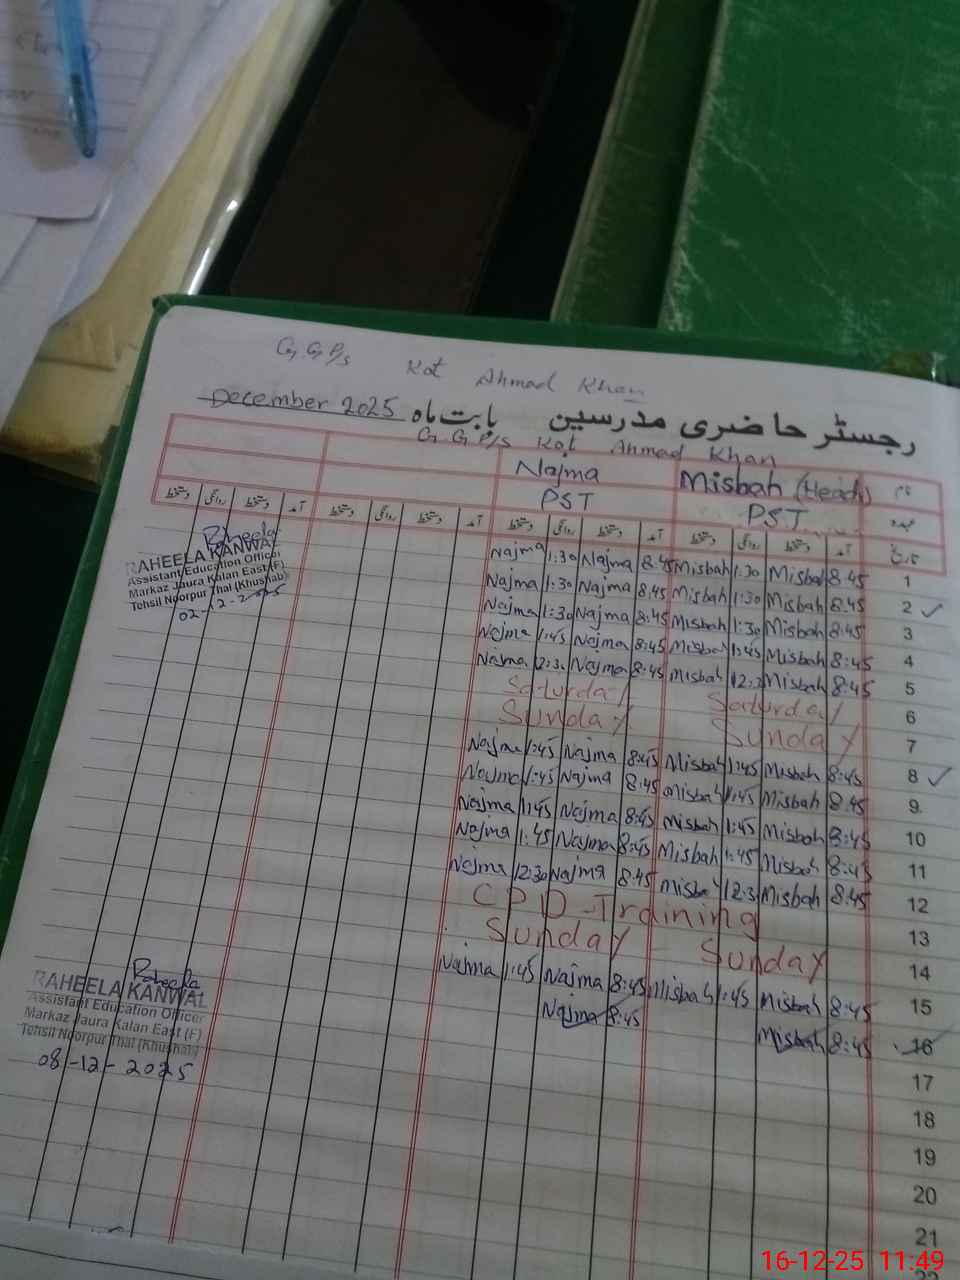 G. G. P/s Kot Ahmad Khan
رجسٹر حاضری مدرسین بابت ماہ December 2025
G. G. P/s Kot Ahmad Khan
نام Misbah (Head) Najma
عہدہ PST PST
تاریخ آمد دستخط روانگی دستخط آمد دستخط روانگی دستخط آمد دستخط روانگی دستخط آمد دستخط روانگی دستخط
1 8:45 Misbah 1:30 Misbah 8:45 Najma 1:30 Najma
2 8:45 Misbah 1:30 Misbah 8:45 Najma 1:30 Najma
3 8:45 Misbah 1:30 Misbah 8:45 Najma 1:30 Najma
4 8:45 Misbah 1:45 Misbah 8:45 Najma 1:45 Najma
5 8:45 Misbah Misbah 8:45 Najma Najma
6 Saturday Saturday
7 Sunday Sunday
8 8:45 Misbah 1:45 Misbah 8:45 Najma 1:45 Najma
9 8:45 Misbah 1:45 Misbah 8:45 Najma 1:45 Najma
10 8:45 Misbah 1:45 Misbah 8:45 Najma 1:45 Najma
11 8:45 Misbah 1:45 Misbah 8:45 Najma 1:45 Najma
12 8:45 Misbah 12:3 Misbah 8:45 Najma 12:30 Najma
13 CPD-Training
14 Sunday Sunday
15 8:45 Misbah 1:45 Misbah 8:45 Najma 1:45 Najma
16 8:45 Misbah 8:45 Najma
17
18
19
20
21
Raheela
RAHEELA KANWAL
Assistant Education Officer
Markaz Jaura Kalan East (F)
Tehsil Noorpur Thal (Khushab)
02-12-2025
Raheela
RAHEELA KANWAL
Assistant Education Officer
Markaz Jaura Kalan East (F)
Tehsil Noorpur Thal (Khushab)
08-12-2025
16-12-25 11:49